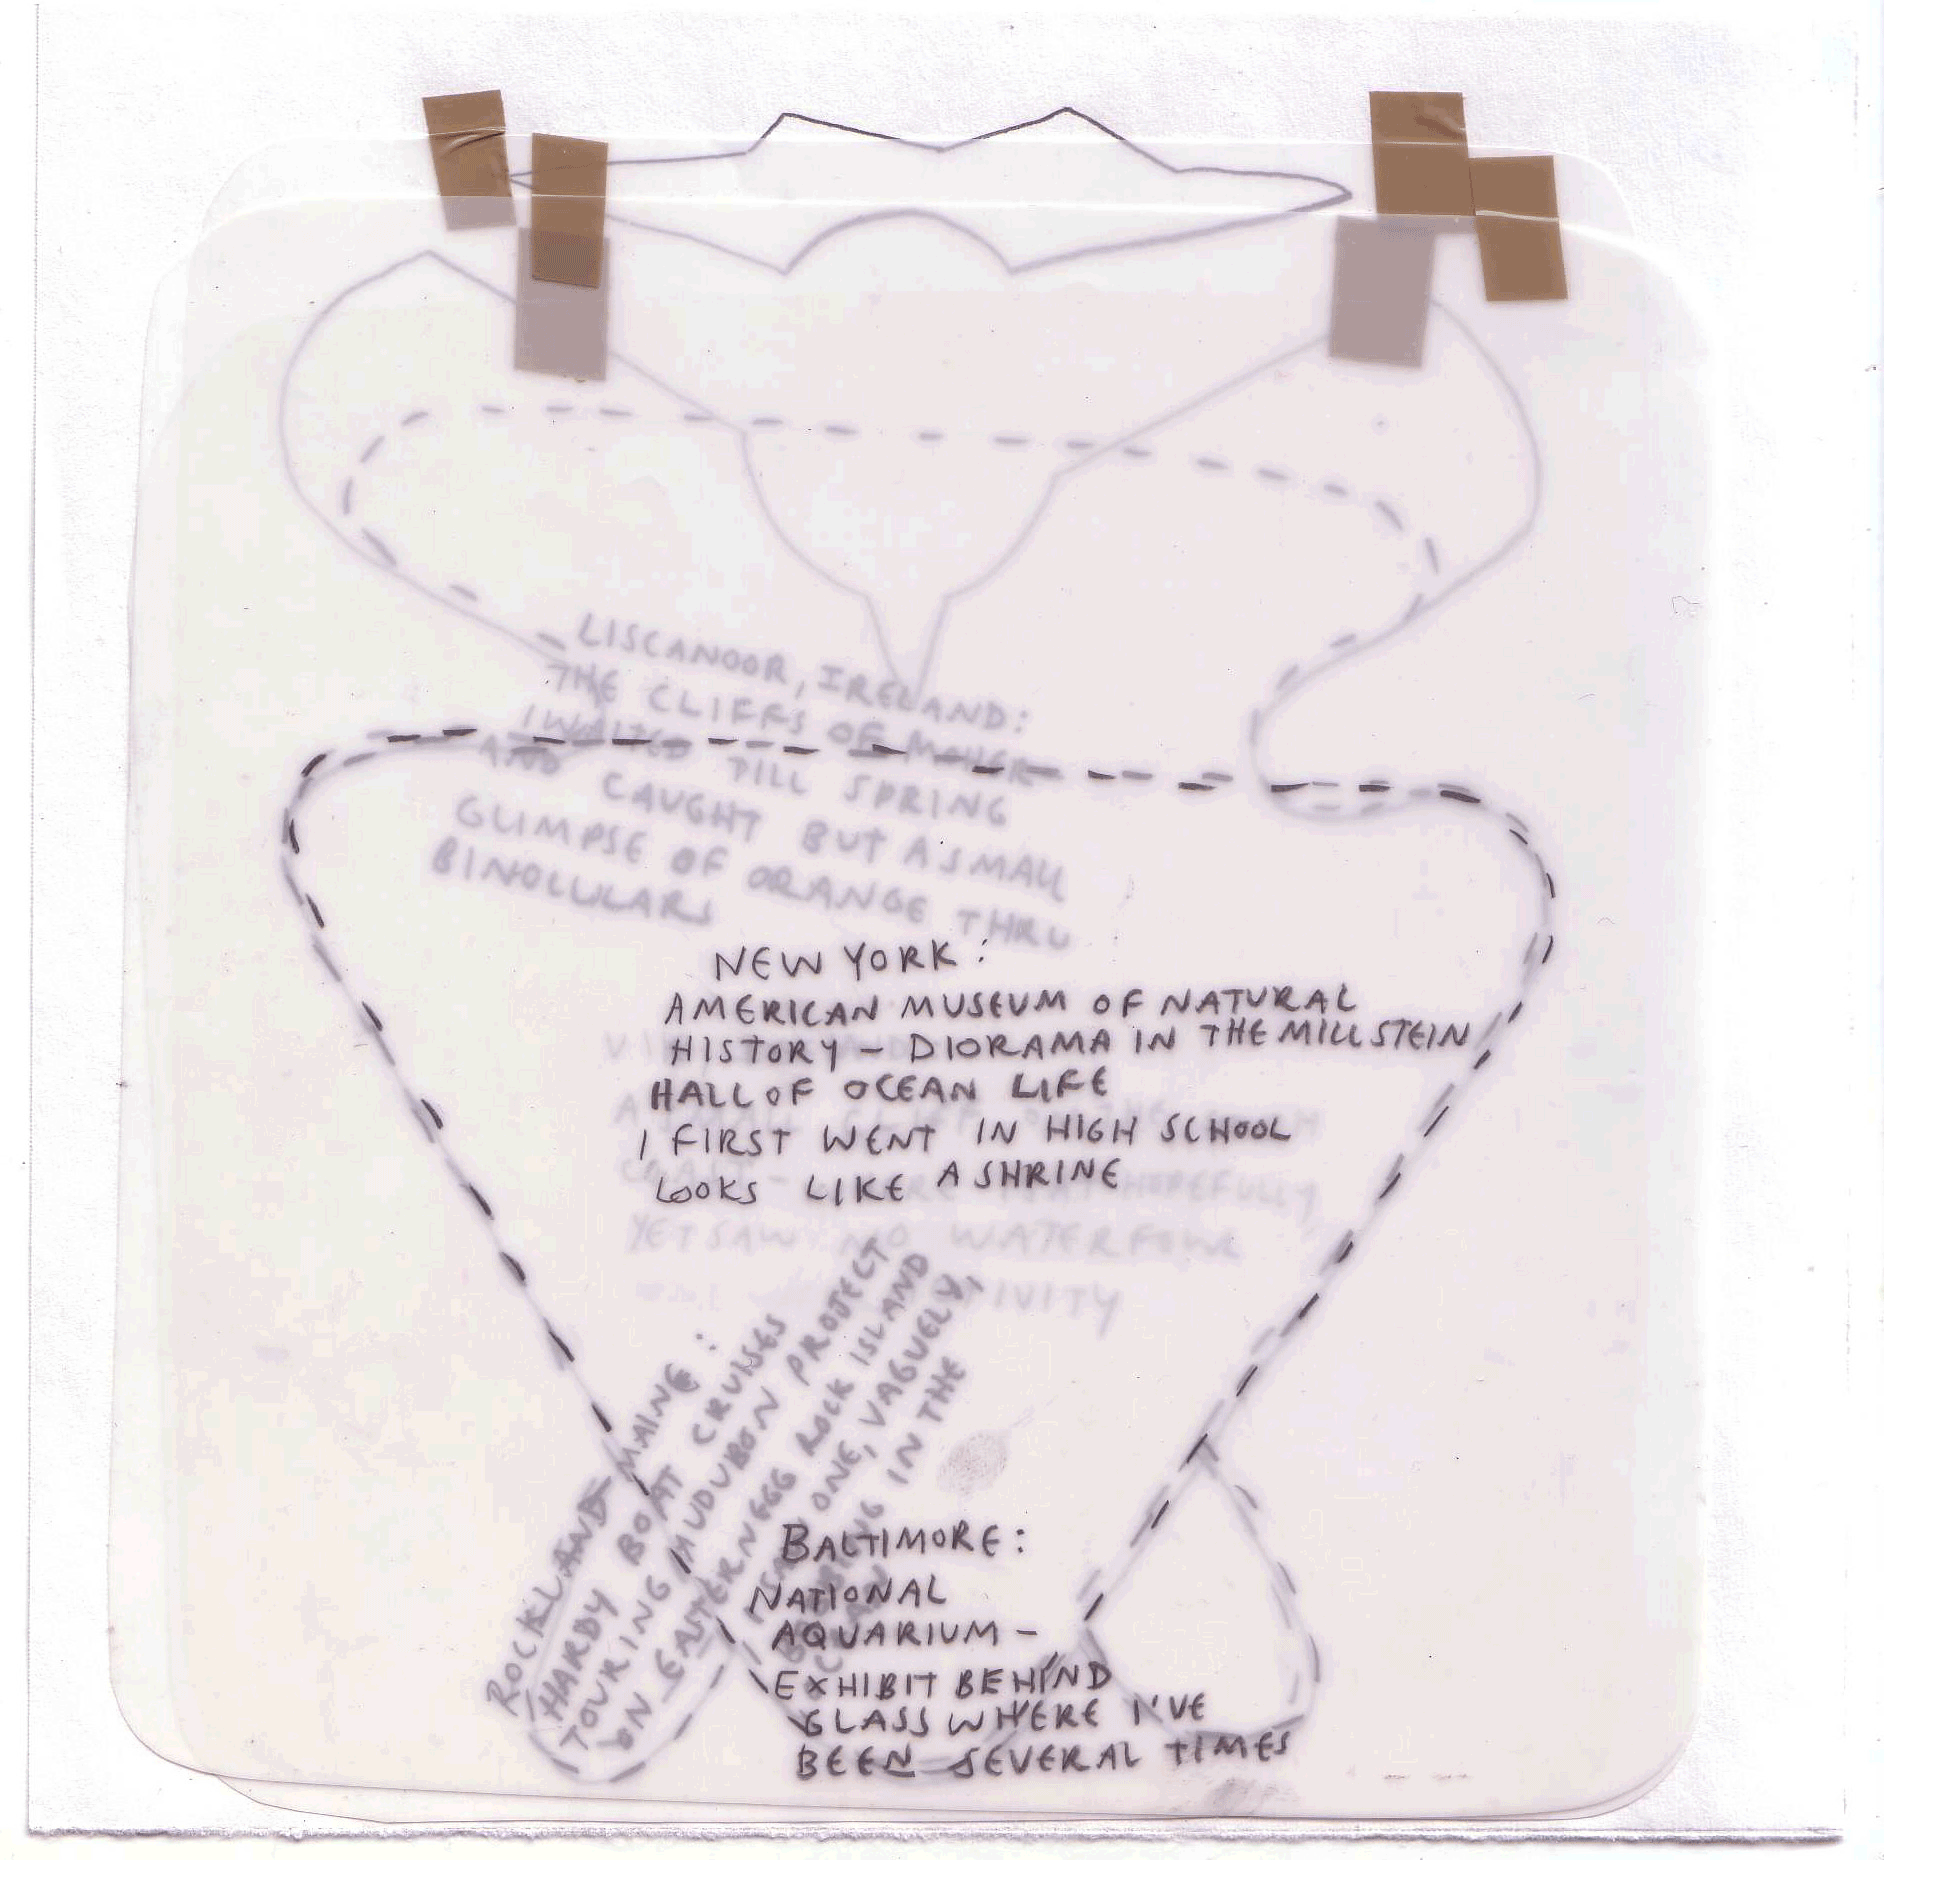 LISCANOOR, IRELAND:
THE CLIFFS OF MOHER
I WAITED TILL SPRING
AND CAUGHT BUT A SMALL
GLIMPSE OF ORANGE THRU
BINOCULARS
NEW YORK:
AMERICAN MUSEUM OF NATURAL
HISTORY – DIORAMA IN THE MILLSTEIN
HALL OF OCEAN LIFE
I FIRST WENT IN HIGH SCHOOL
LOOKS LIKE A SHRINE
HOPEFULLY
YET SAW NO WATERFOWL
ROCKLAND – MAINE:
HARDY BOAT CRUISES
TOURING AUDUBON PROJECT
ON EASTERN EGG ROCK ISLAND
I SAW ONE, VAGUELY,
BOBBING IN THE
OCEAN
BALTIMORE:
NATIONAL
AQUARIUM –
EXHIBIT BEHIND
GLASS WHERE I'VE
BEEN SEVERAL TIMES